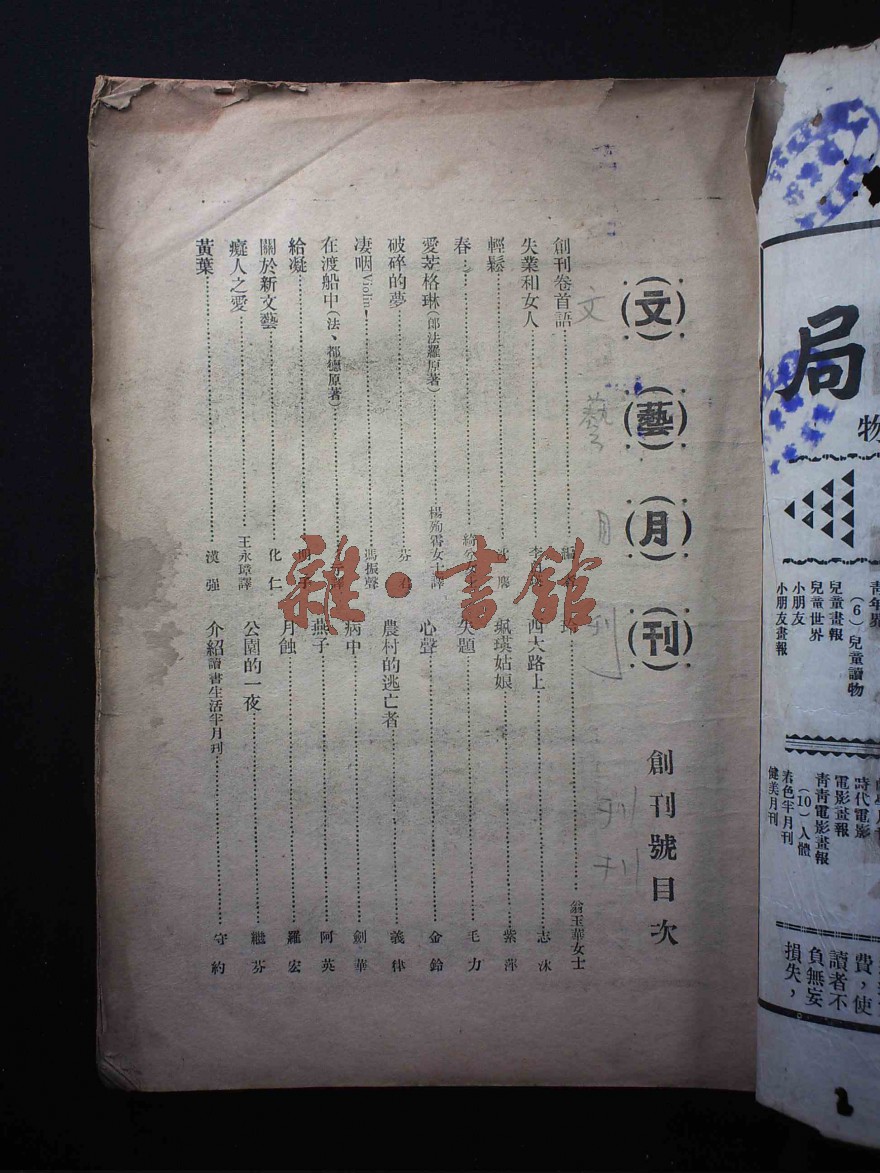 (文)(藝)(月)(刊)
創刊號目次
創刊卷首語
失業和女人
輕鬆
春
愛芷格琳(郎法羅原著) 楊殉霄女士譯
破碎的夢
淒咽Violin! 馮振聲
在渡船中(法、都德原著)
給凝
關於新文藝 化仁
癡人之愛 王永璋譯
黃葉 漢強
翁玉華女士
西大路上 志沫
珮瑛姑娘 紫萍
失題 毛力
心聲 金鈴
農村的逃亡者 義律
病中 劍華
燕子 阿英
月蝕 羅宏
公園的一夜 繼芬
介紹讀書生活半月刊 守約
雜·書館
文藝月刊
刊刊
局
物
(6)兒童讀物
兒童畫報
兒童世界
小朋友
小朋友畫報
時代電影
電影畫報
青青電影畫報
(10)人體
素色半月刊
健美月刊
費,使
讀者不
負無妄
損失,